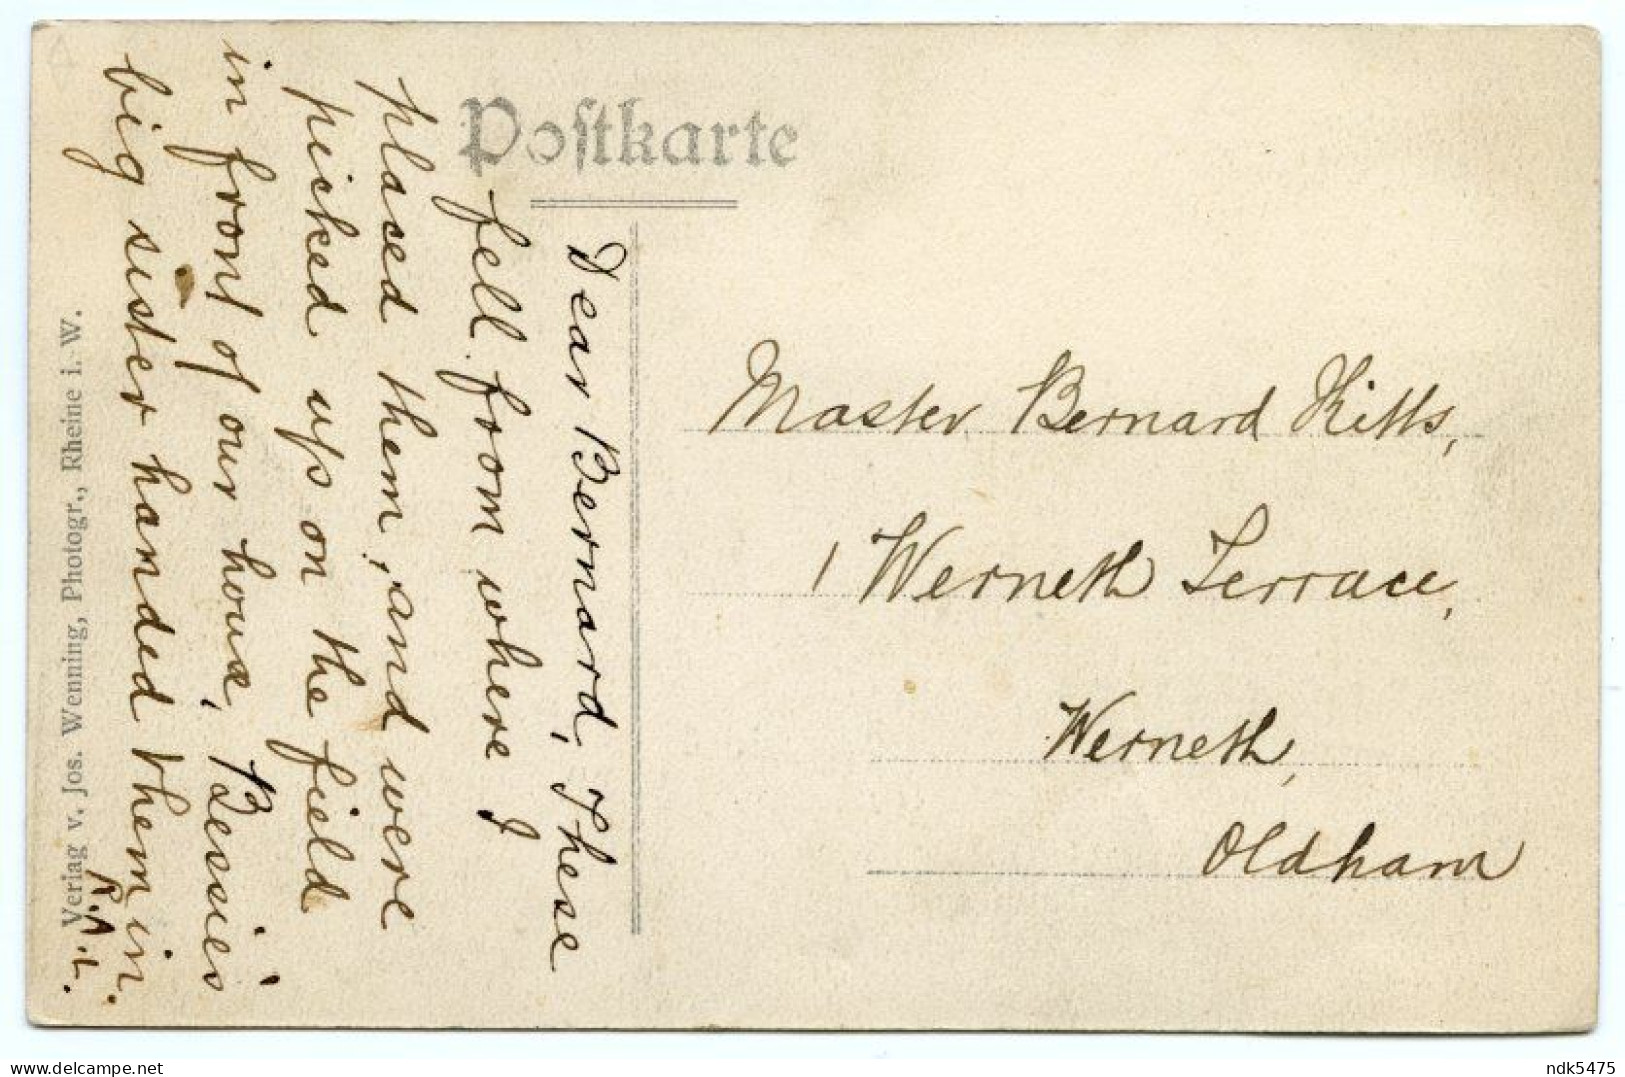 Postkarte
Dear Bernard, These
fell from where I
placed them, and were
picked up on the field
in front of our house, Bessie's
big sister handed them in.
Master Bernard Kitts,
1 Werneth Terrace,
Werneth,
Oldham
Verlag v. Jos. Wenning, Photogr., Rheine i. W.
ndk5475